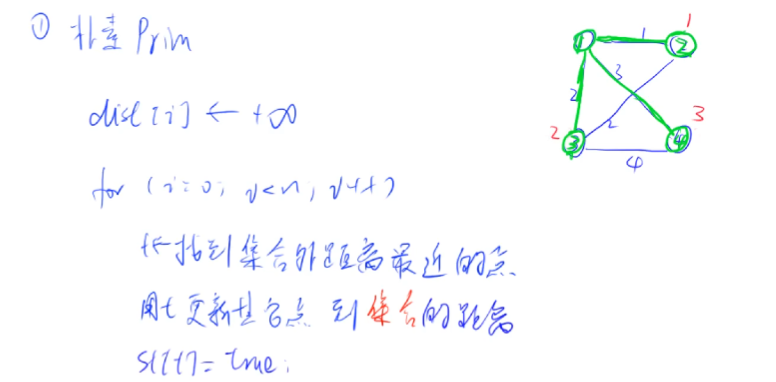 ① 朴素 Prim
dist[i] ← +∞
for (i=0; i<n; i++)
t← 找到集合外距离最近的点
用t更新其它点 到集合的距离
s[t]=true;
1
① 1 ②
2 3
2 ③ 2 ④ 3
4